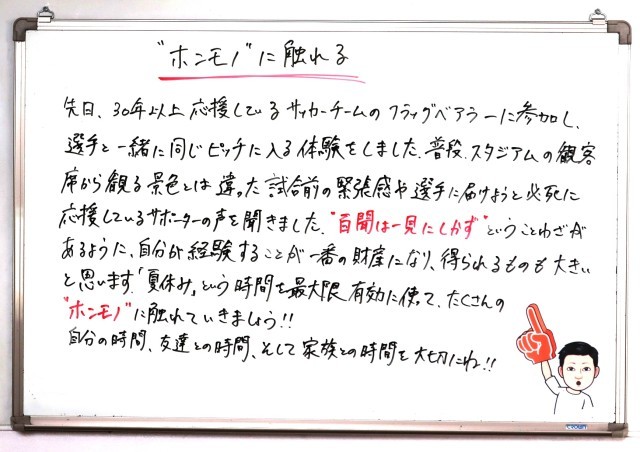 "ホンモノ"に触れる
先日、30年以上応援しているサッカーチームのフラッグベアラーに参加し、
選手と一緒に同じピッチに入る体験をしました。普段、スタジアムの観客
席から観る景色とは違った試合前の緊張感や選手に届けようと必死に
応援しているサポーターの声を聞きました。"百聞は一見にしかず"ということわざが
あるように、自分が経験することが一番の財産になり、得られるものも大きい
と思います。「夏休み」という時間を最大限有効に使って、たくさんの
"ホンモノ"に触れていきましょう!!
自分の時間、友達との時間、そして家族との時間を大切にね!!